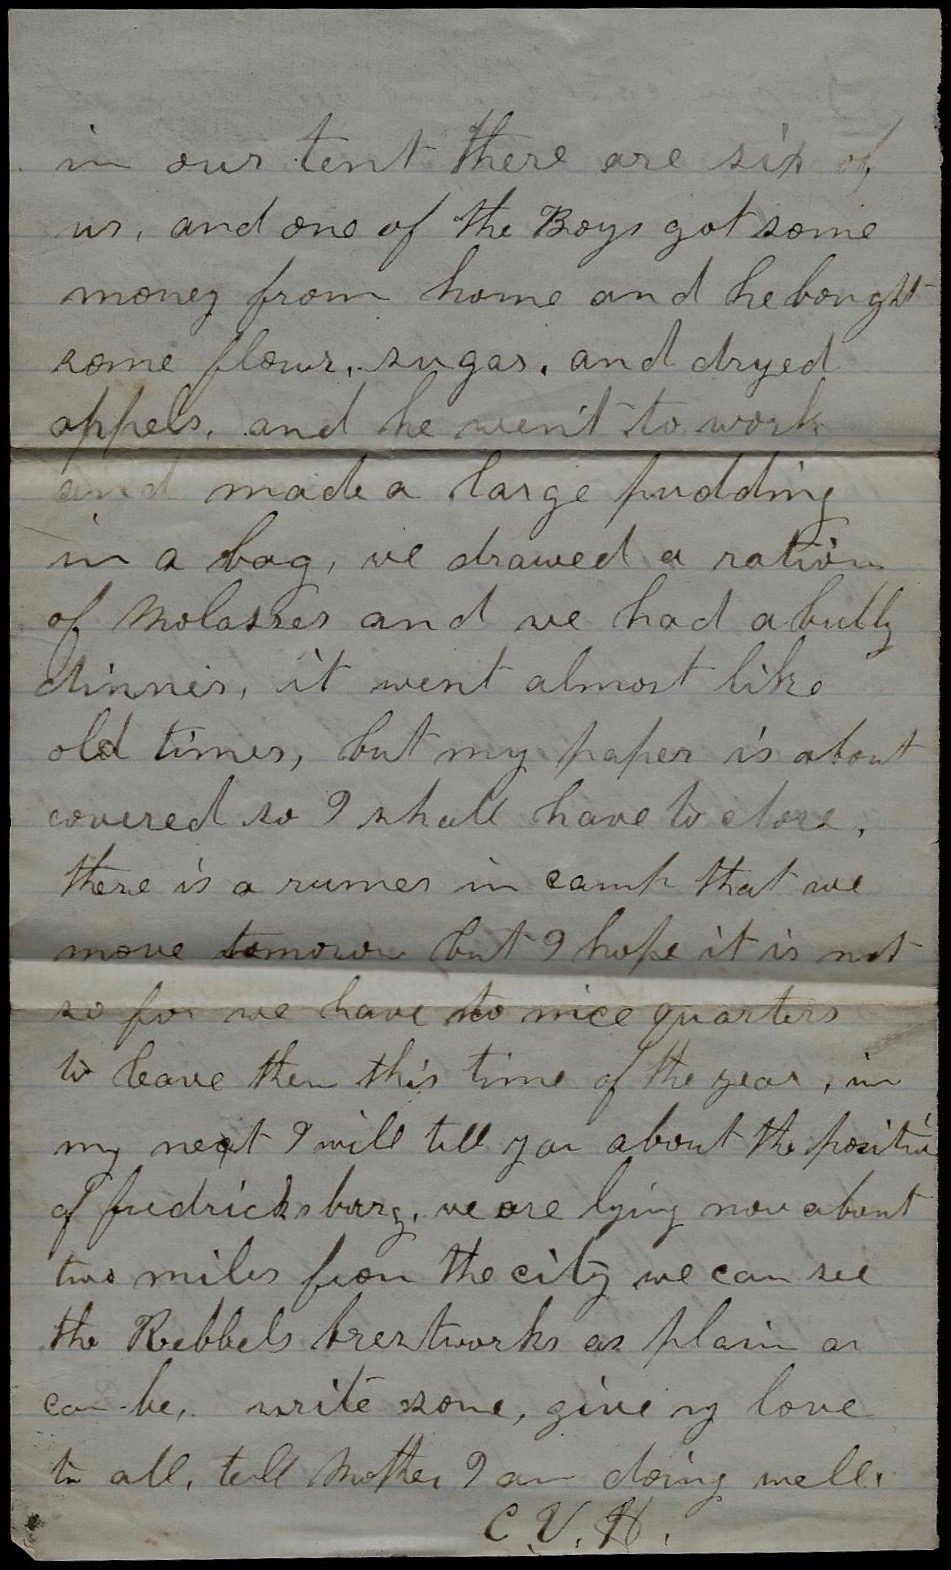 in our tent there are six of
us, and one of the Boys got some
money from home and he bought
some flour, sugar, and dryed
appels, and he went to work
and made a large pudding
in a bag, we drawed a ration
of Molasses and we had a bully
dinner, it went almost like
old times, but my paper is about
covered so I shall have to close,
there is a rumer in camp that we
move tomorow but I hope it is not
so for we have to nice quarters
to leave them this time of the year, in
my next I will tell you about the position
of fredricksburg, we are lying now about
two miles from the city we can see
the Rebbels brestworks as plain as
can be, write soone, give my love
to all, tell Mother I am doing well.
C. V. H.